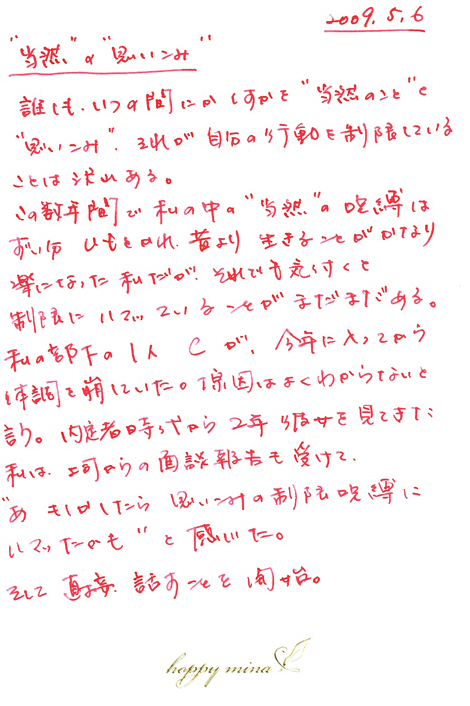 2009.5.6
"当然"の"思いこみ"
誰しも、いつの間にか何かを"当然のこと"と
"思いこみ"、それが自分の行動を制限している
ことは沢山ある。
この数年間で私の中の"当然"の呪縛は
ずい分ひもとかれ、昔より生きることがかなり
楽になった私だが、それでも気付くと
制限にハマっていることがまだまだある。
私の部下の1人Cが、今年に入ってから
体調を崩していた。原因はよくわからないと
言う。内定者時代から2年彼女を見てきた
私は、上司からの面談報告も受けて、
"あ もしかしたら 思いこみの制限呪縛に
ハマったかも"と感じた。
そして直接、話すことを開始。
happy mina